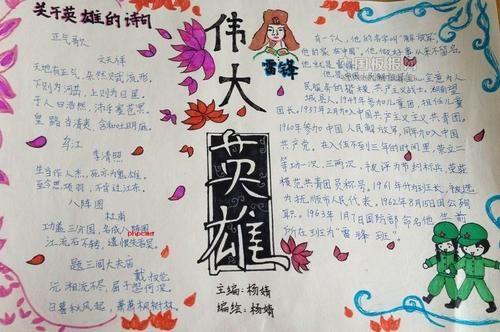 关于英雄的诗句
正气歌
文天祥
天地有正气，杂然赋流形。
下则为河岳，上则为日星。
于人曰浩然，沛乎塞苍冥。
皇路当清夷，含和吐明庭。
李清照
生当作人杰，死亦为鬼雄。
至今思项羽，不肯过江东。
八阵图
杜甫
功盖三分国，名成八阵图
江流石不转，遗恨失吞吴。
题三闾大夫庙
戴叔伦
沅湘流不尽，屈子怨何深。
日暮秋风起，萧萧枫树林。
伟大
英雄
主编：杨婧
编绘：杨婧
雷锋
有一个人，他的名字叫“解放军”
他的家叫中国”，他做好事从来不留名
他就是雷锋
民服务的楷模、共产主义战士。湖南望
城县人。1949年参加儿童团，担任儿童
团长。1957年2月加入中国共产主义青年团。
1960年参加中国人民解放军，同年加入中国
共产党。在入伍不到三年的时间里，荣立二
等功一次，三等功两次，被评为节约标兵，荣获
模范共青团员称号，1961年为班长，被选
为抚顺市人民代表。1962年8月15日因公殉
职。1963年1月7日国防部命名他生前
所在班为“雷锋班”